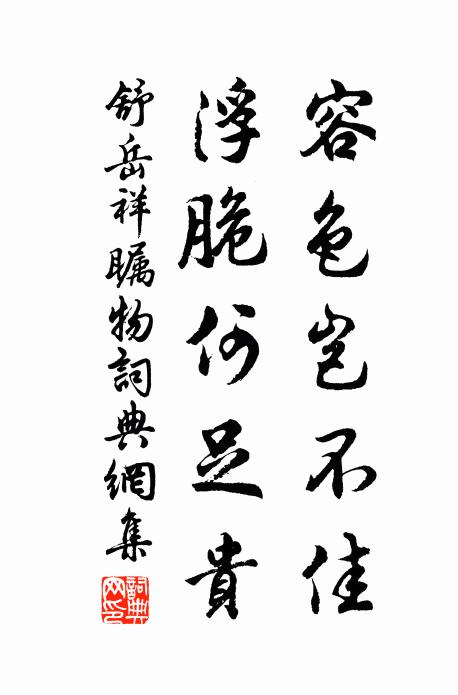 容色岂不佳
浮脆何足貴
舒岳祥瞩物詞典網集
詞典網印